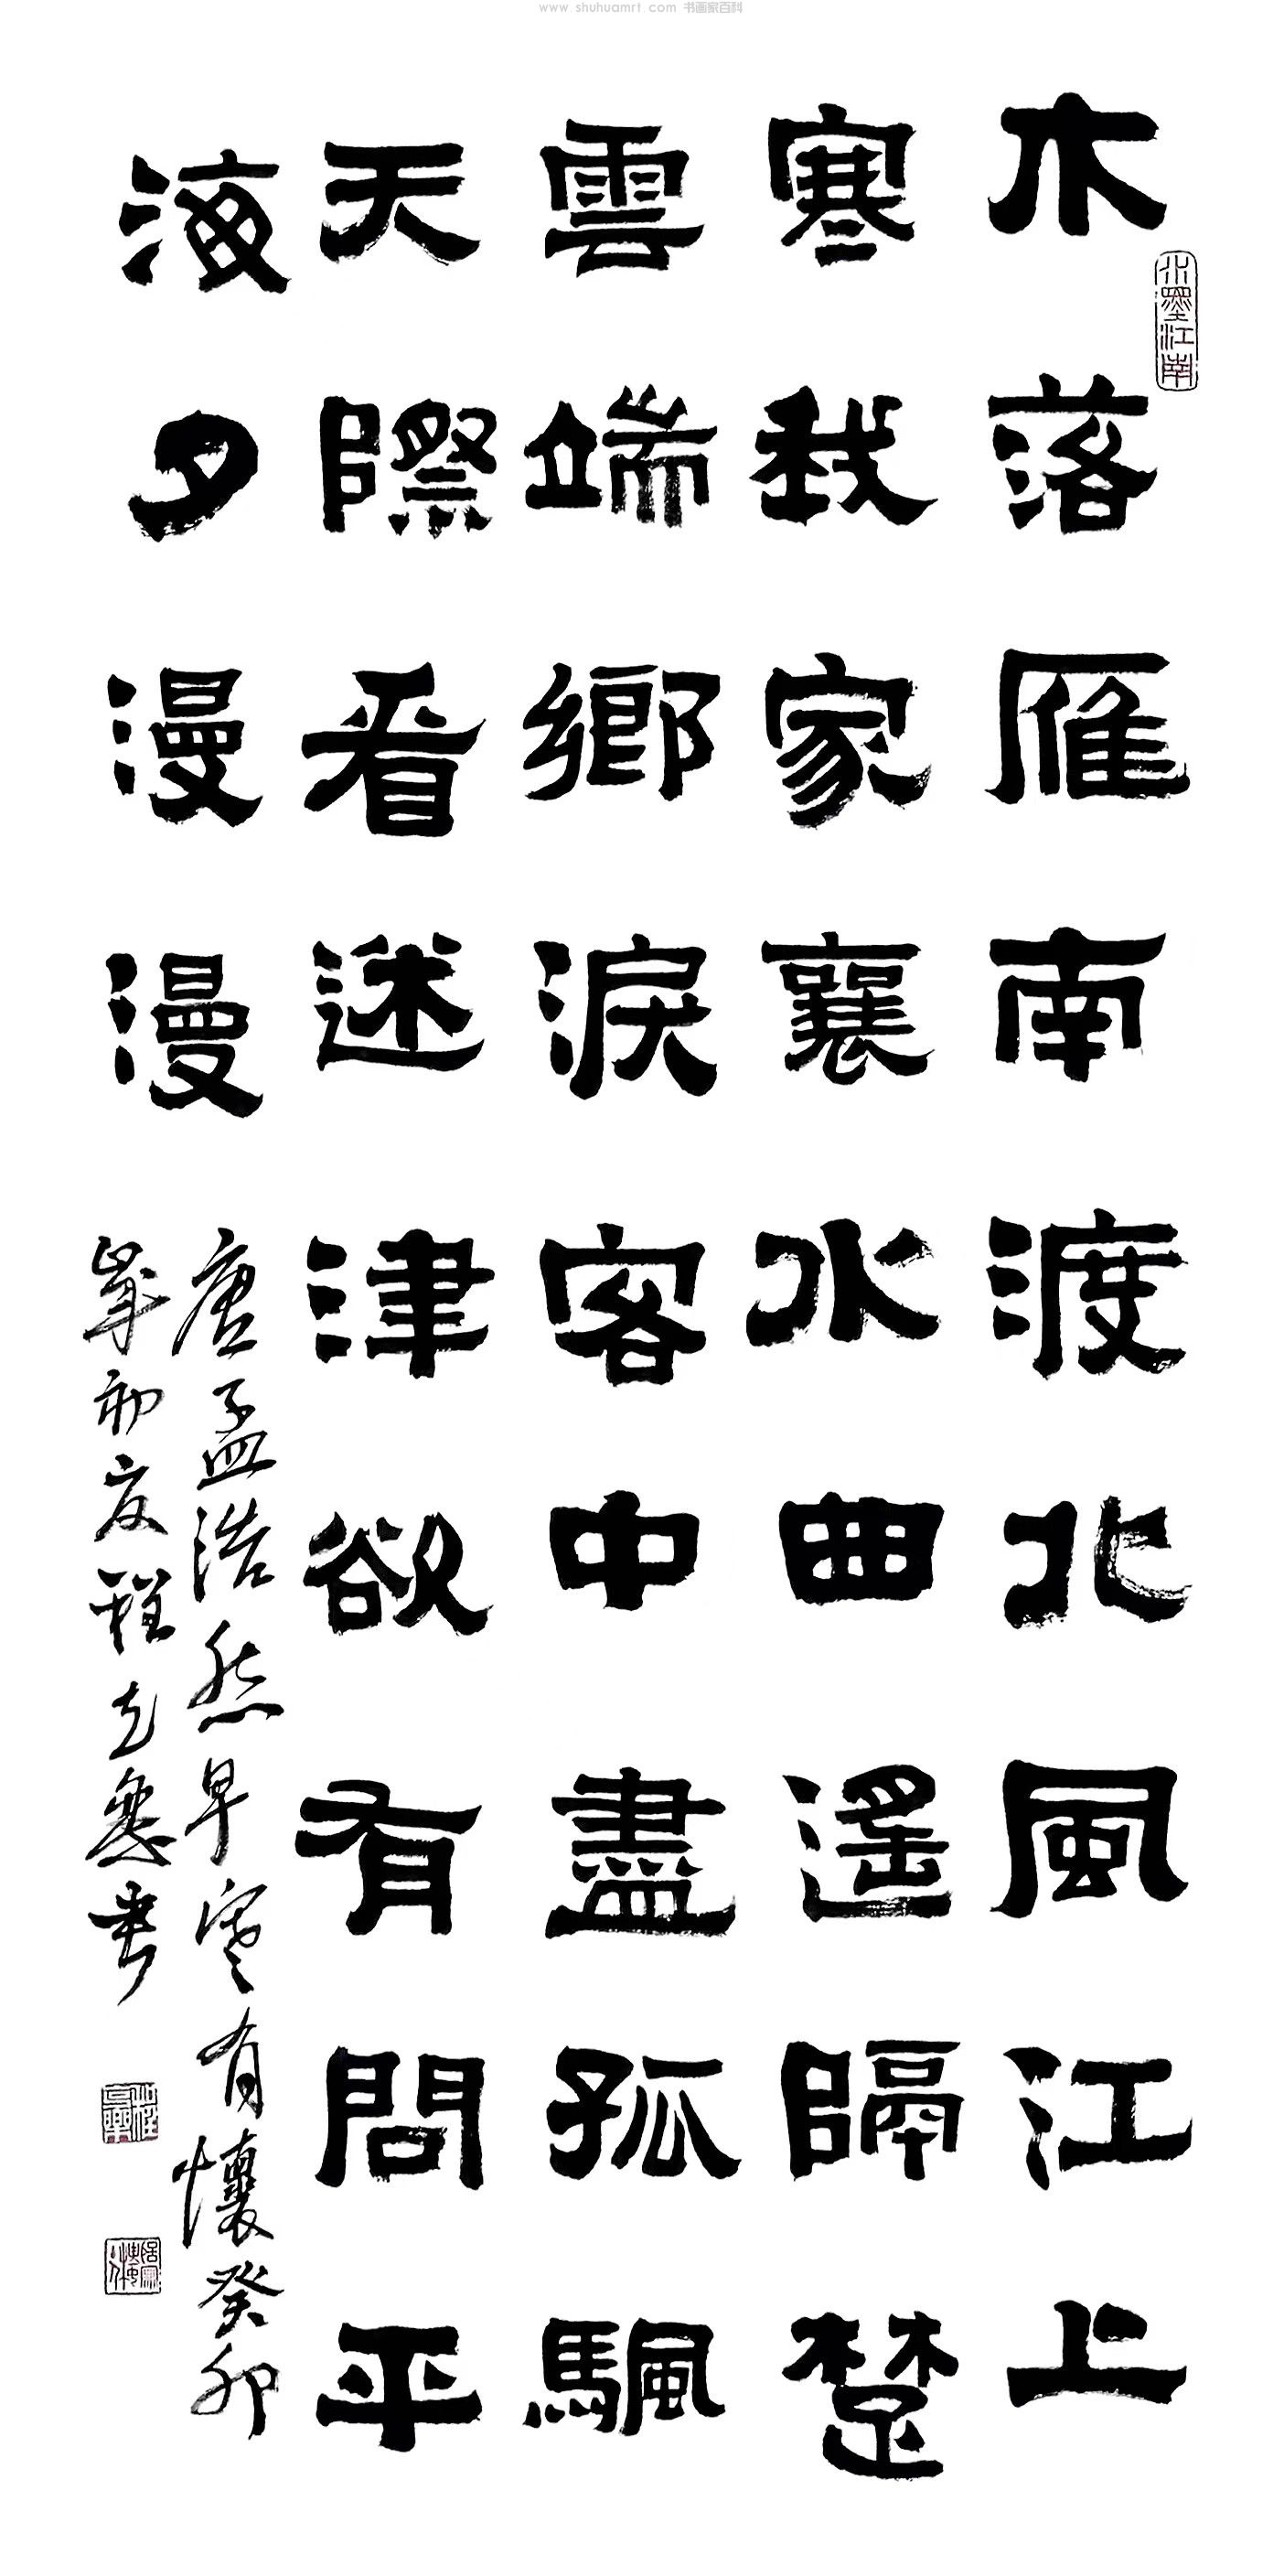 www.shuhuamrt.com 书画家百科
木落雁南渡北風江上
寒我家襄水曲遙隔楚
雲端鄉淚客中盡孤颿
天際看迷津欲有問平
海夕漫漫
唐孟浩然早寒有懷癸卯
歲初夏程書
水墨江南